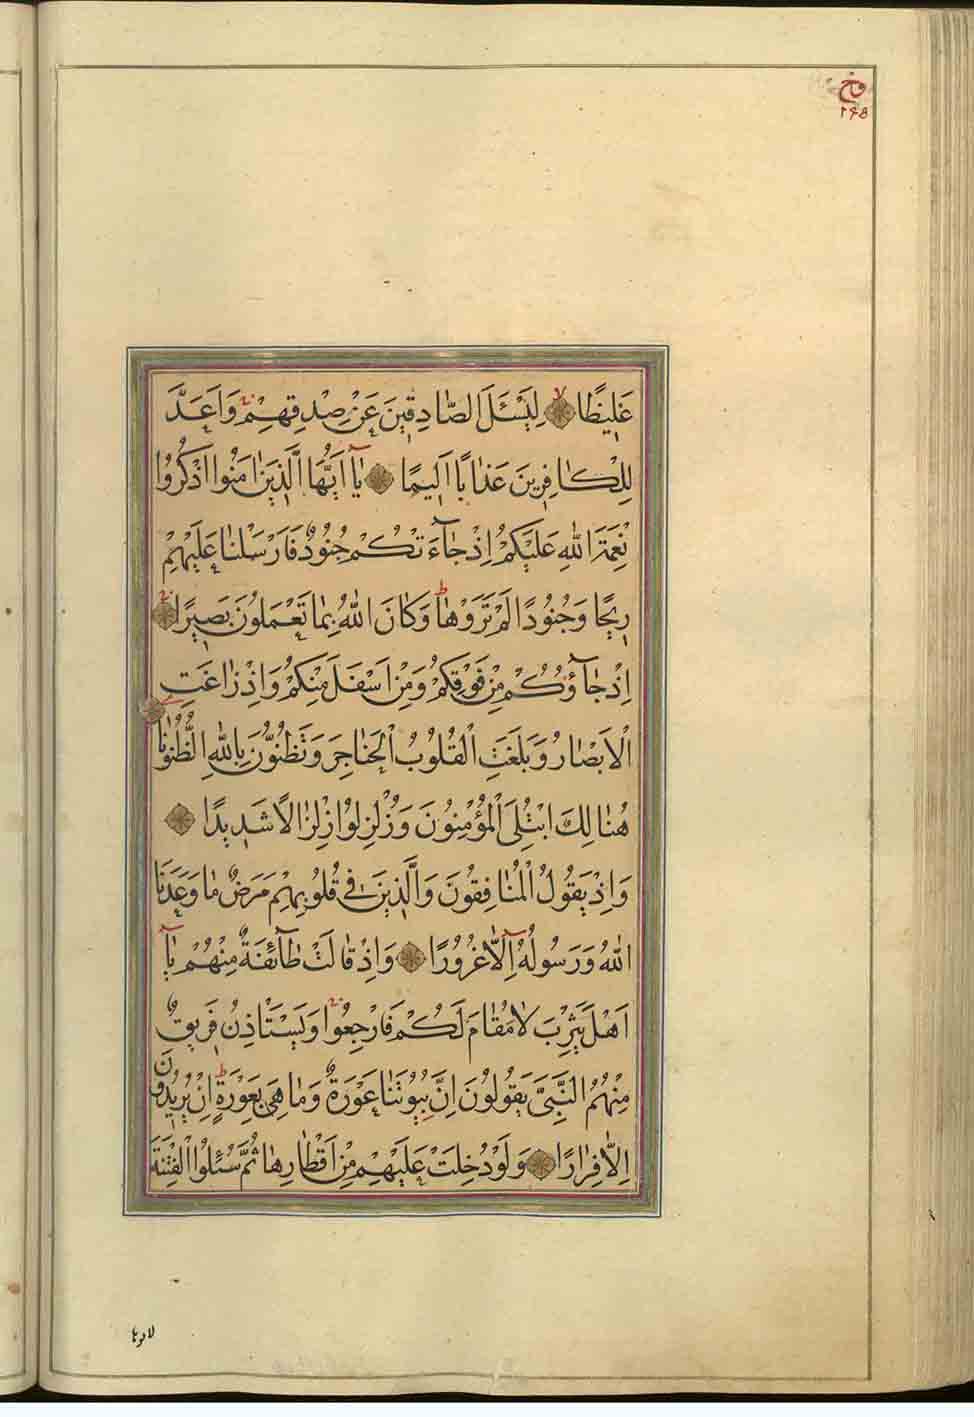 ۲۶۵
غَلِيظًا لِيَسْئَلَ الصَّادِقِينَ عَنْ صِدْقِهِمْ وَاَعَدَّ
لِلْكَافِرِينَ عَذَابًا اَلِيمًا يَآ اَيُّهَا الَّذِينَ اٰمَنُوا اذْكُرُوا
نِعْمَةَ اللهِ عَلَيْكُمْ اِذْ جَآءَتْكُمْ جُنُودٌ فَاَرْسَلْنَا عَلَيْهِمْ
رِيحًا وَجُنُودًا لَمْ تَرَوْهَا وَكَانَ اللهُ بِمَا تَعْمَلُونَ بَصِيرًا
اِذْ جَآؤُكُمْ مِنْ فَوْقِكُمْ وَمِنْ اَسْفَلَ مِنْكُمْ وَاِذْ زَاغَتِ
الْاَبْصَارُ وَبَلَغَتِ الْقُلُوبُ الْحَنَاجِرَ وَتَظُنُّونَ بِاللهِ الظُّنُونَا
هُنَالِكَ ابْتُلِىَ الْمُؤْمِنُونَ وَزُلْزِلُوا زِلْزَالًا شَدِيدًا
وَاِذْ يَقُولُ الْمُنَافِقُونَ وَالَّذِينَ فِى قُلُوبِهِمْ مَرَضٌ مَا وَعَدَنَا
اللهُ وَرَسُولُهُ اِلَّا غُرُورًا وَاِذْ قَالَتْ طَآئِفَةٌ مِنْهُمْ يَآ
اَهْلَ يَثْرِبَ لَا مُقَامَ لَكُمْ فَارْجِعُوا وَيَسْتَاْذِنُ فَرِيقٌ
مِنْهُمُ النَّبِىَّ يَقُولُونَ اِنَّ بُيُوتَنَا عَوْرَةٌ وَمَا هِىَ بِعَوْرَةٍ اِنْ يُرِيدُونَ
اِلَّا فِرَارًا وَلَوْ دُخِلَتْ عَلَيْهِمْ مِنْ اَقْطَارِهَا ثُمَّ سُئِلُوا الْفِتْنَةَ
لاتوها